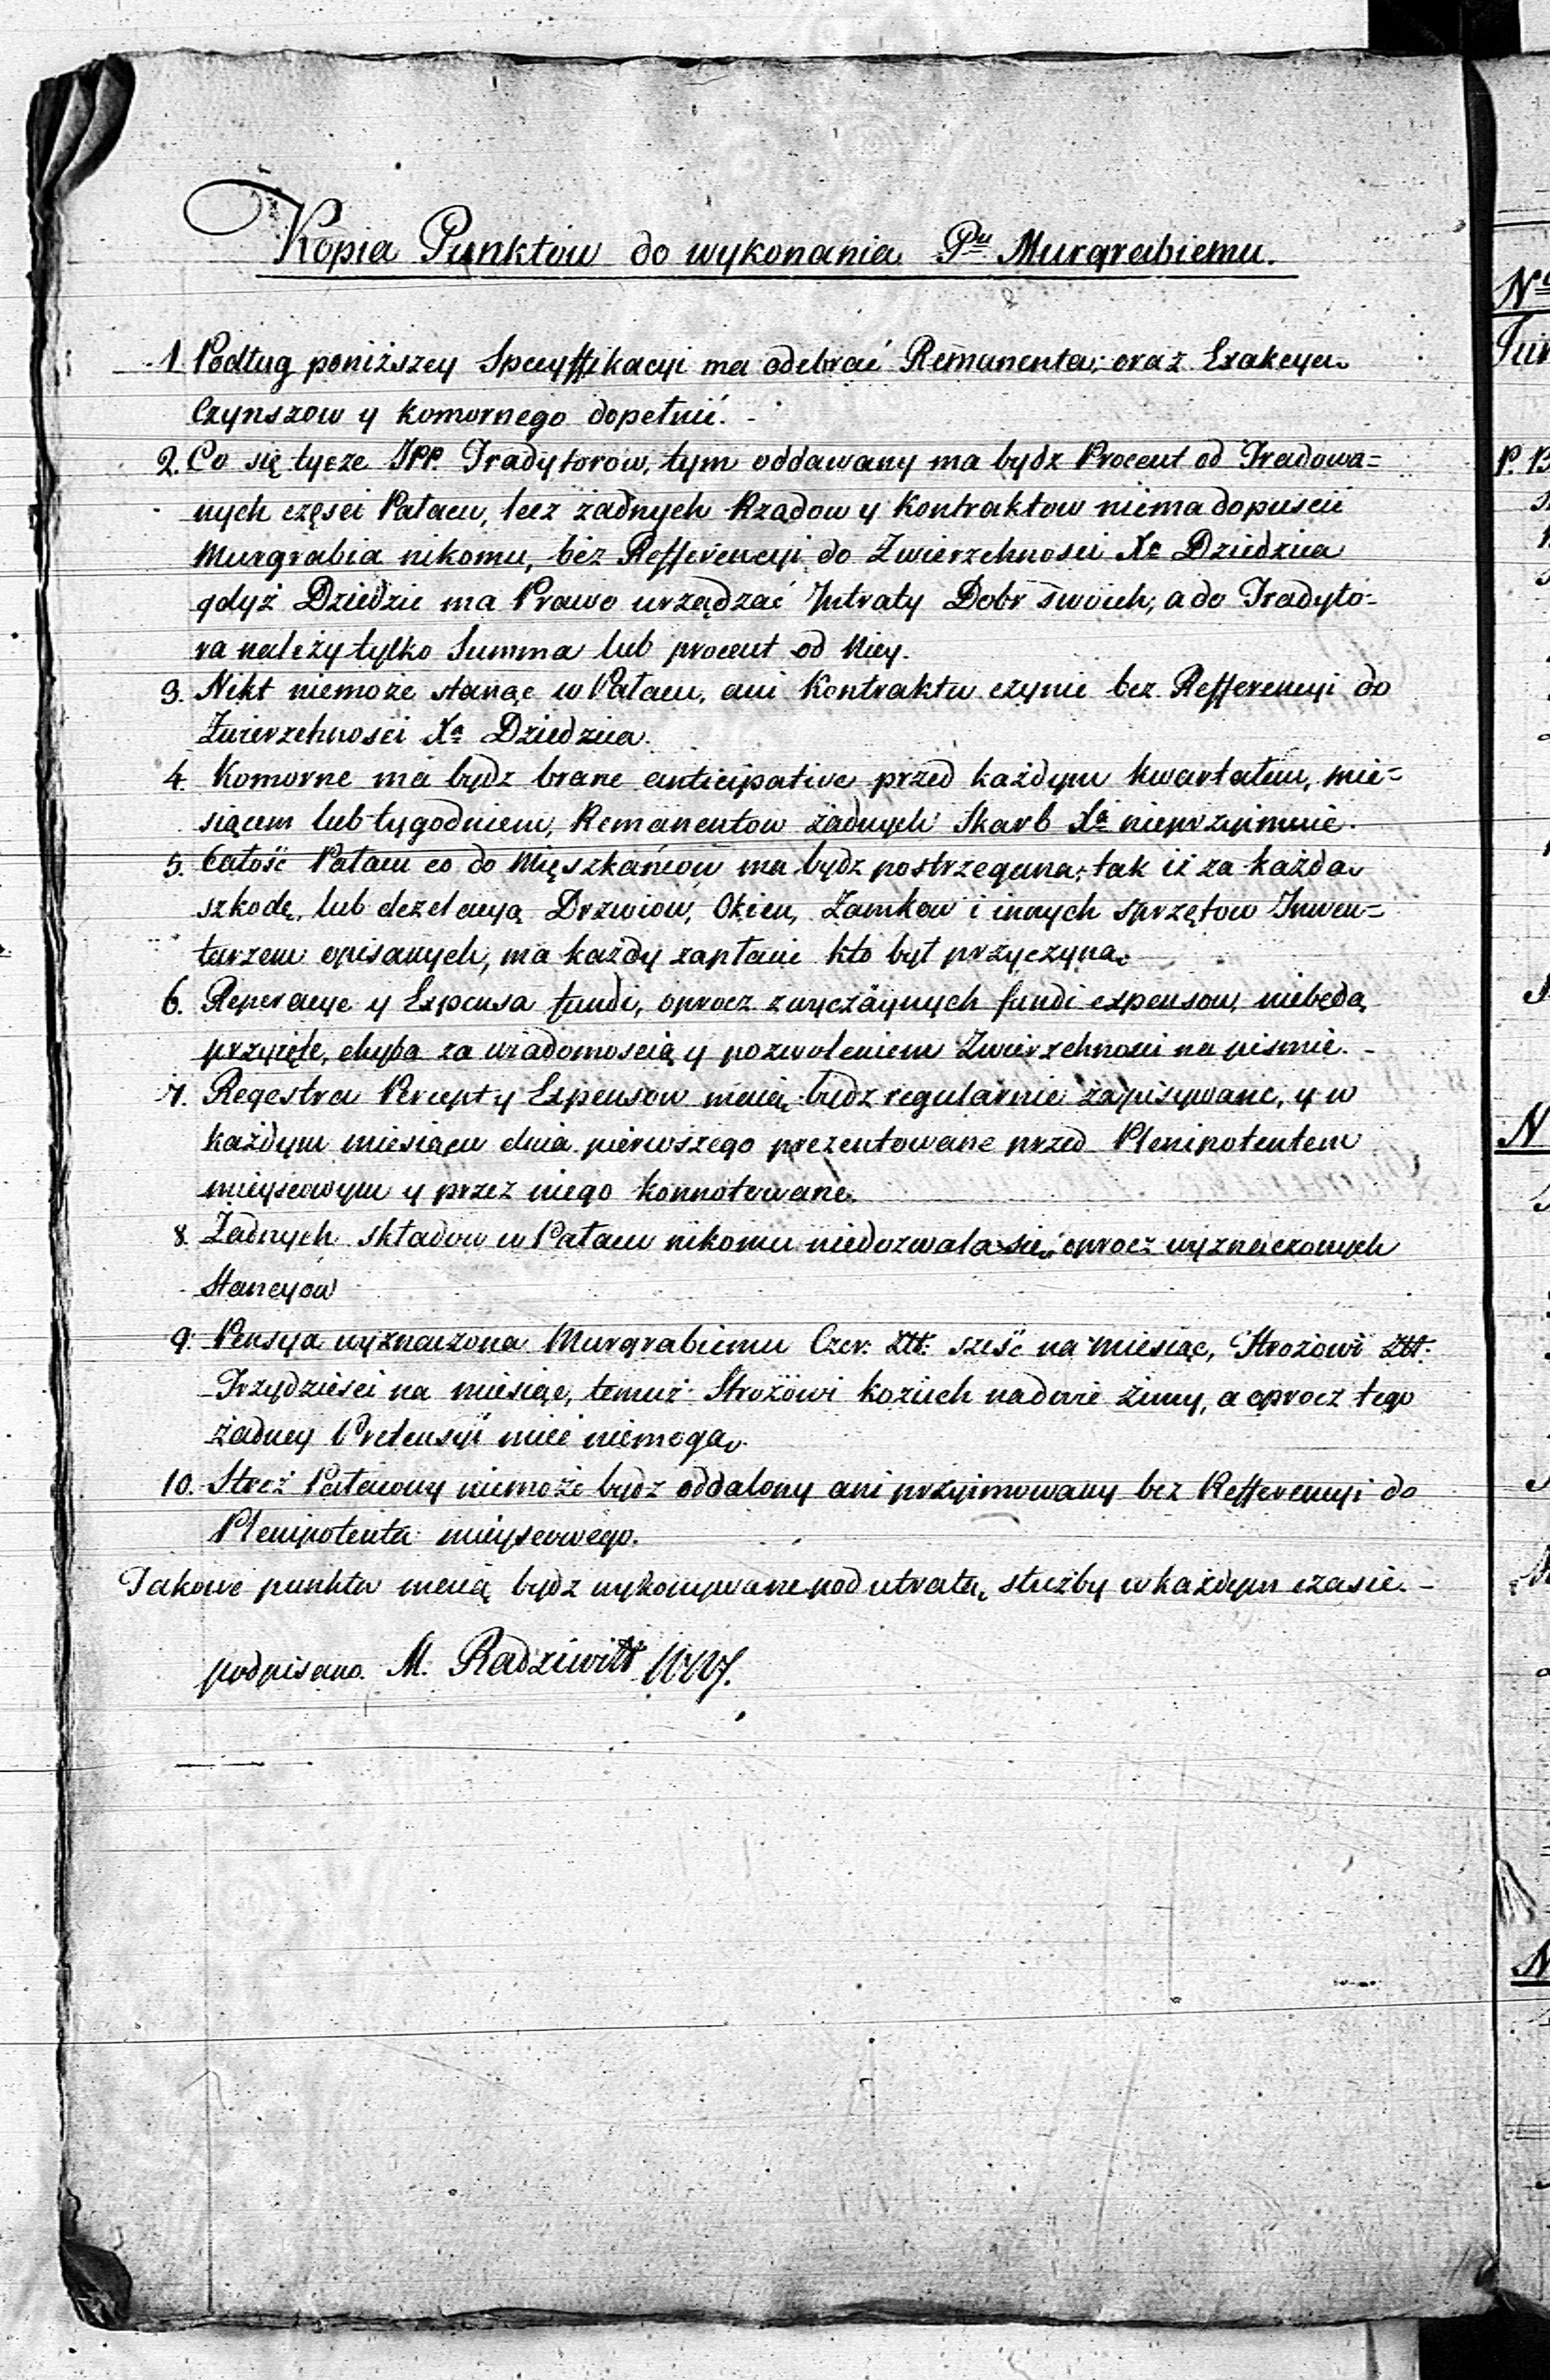 Kopia Punktow do wykonania Pu Murgrabiemu.
1 Podług poniższey Specyffikacyi ma odebrać Remanenta, oraz Exakcyą
Czynszow y komornego dopełnić.
2. Co się tycze JPP. Tradytorow, tym oddawany ma bydz Procent od Tradowa=
nych częsci Pałacu, lecz żadnych Rządow y Kontraktow niema dopuscić
Murgrabia nikomu, bez Refferencyi do Zwierzchnosci Xa Dziedzica
gdyż Dziedzic ma Prawo urządzać Jntraty Dobr swoich, a do Tradyto-
ra należy tylko Summa lub procent od Niey.
3. Nikt niemoże stanąc w Pałacu, ani Kontraktu czynic bez Refferencyi do
Zwierzchnosci Xa Dziedzica.
4. Komorne ma bydz brane anticipative przed każdym kwartałem, mie=
siącem lub tygodniem, Remanentow żadnych Skarb Xa nieprzyimuie.
5. Całość Pałacu co do Mięszkańcow ma bydz postrzegana, tak iż za każdą
szkodę, lub dezelacyą Drzwiow, Okien, Zamkow i innych sprzętow Inwen=
tarzem opisanych, ma każdy zapłacic kto był przyczyną.
6. Reperacye y Expensa fundi, oprocz zwyczaynych fundi expensow, niebędą
przyięte, chyba za wiadomoscią y pozwoleniem Zwierzchnosci na pismie. -
7. Regestra Percept y Expensow maią bydz regularnie zapisywane, y w
każdym miesiącu dnia pierwszego prezentowane przed Plenipotentem
mieyscowym y przez niego konnotowane.
8. Żadnych składow w Pałacu nikomu niedozwala się, oprocz wyznaczonych
Stancyow
9. Pensya wyznaczona Murgrabiemu Czer. Złł: sześć na miesiąc, Strożowi Złł:
Trzydziesci na miesiąc, temuż Strożowi kożuch na dwie Zimy, a oprocz tego
żadney Pretensyi miec niemogą.
10. Stroż Pałacowy niemoże bydz oddalony ani przyimowany bez Refferencyi do
Plenipotenta mieyscowego.
Takowe punkta maią bydz wykonywane pod utratą służby w każdym czasie. -
podpisano. M. Radziwiłł WWJ.